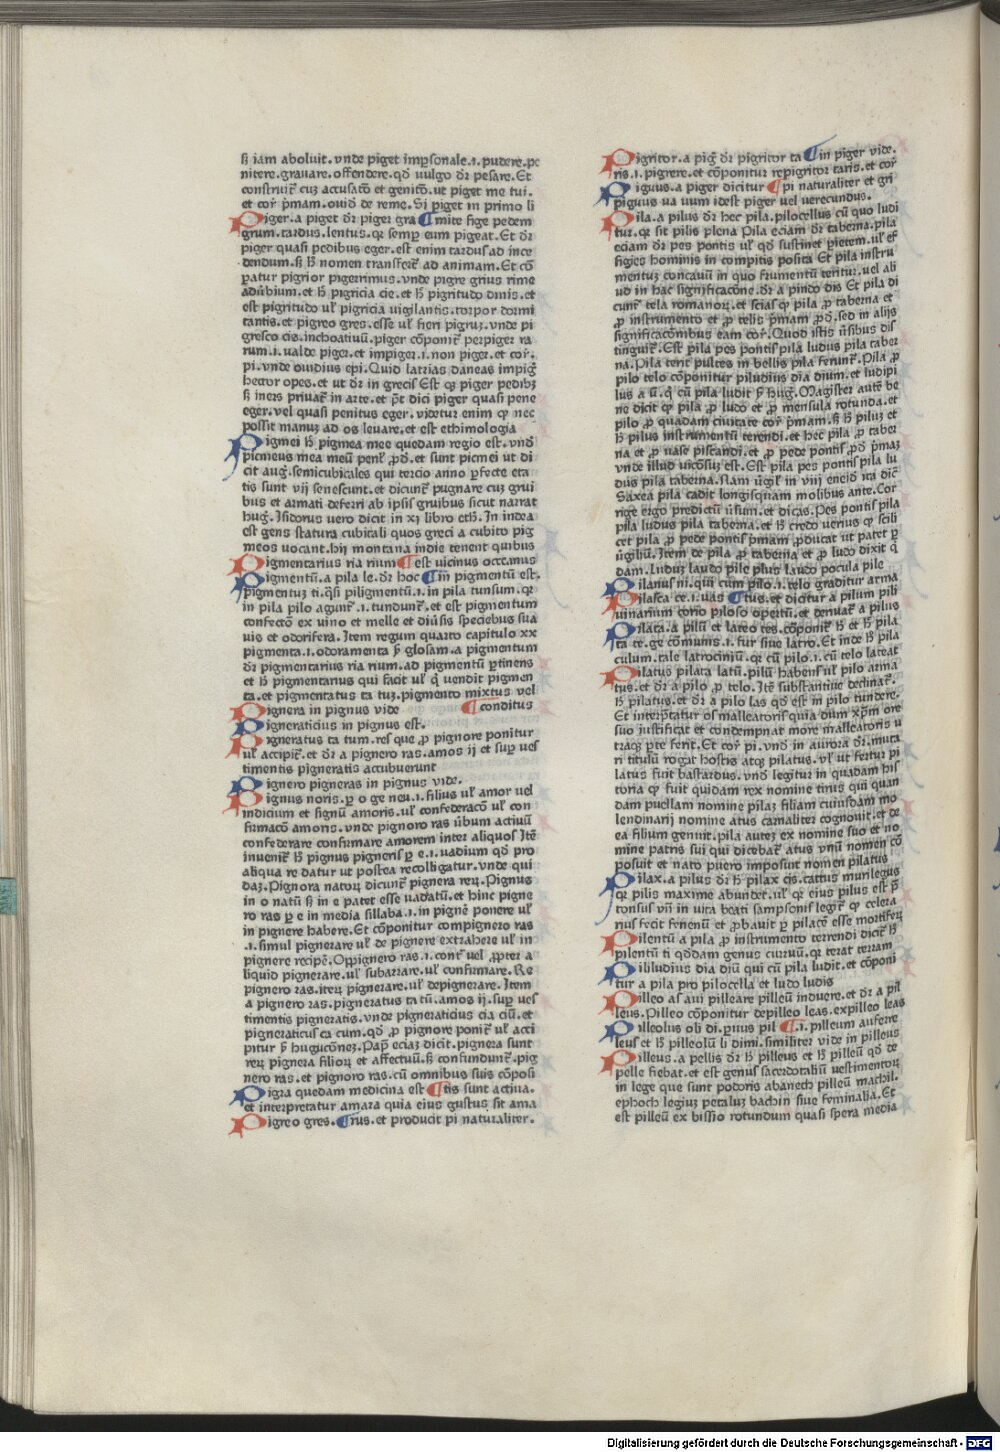 sꝫ iam aboluit. vnde piget imp̱sonale .i. pudere. pe
nitere. grauare. offendere. qđ uulgo dr̄ pesare. Et
construit᷑ cuȝ accusatō et genitō. ut piget me tui.
et cor̄ pͥmam. ouiđ de reme. Si piget in primo li
Piger. a piget dr̄ piger gra ¶ mite fige pedem
grum. tardus. lentus. qꝛ semꝑ eum pigeat. Et dr̄
piger quasi pedibus eger. est enim tardus ad ince
dendum. sꝫ ħ nomen transfert᷑ ad animam. Et cō
ꝑatur pigrior pigerrimus. vnde pigre grius rime
adūbium. et ħ pigricia cie. et ħ pigritudo dinis. et
est pigritudo uł pigricia vigilantis. torpor dormi
tantis. et pigreo gres. esse uł fieri pigruȝ. vnde pi
gresco cis. inchoatiuū. piger cōponit᷑ perpiger ra
rum .i. valde piger. et impiger .i. non piger. et cor̄.
pi. vnde ouidius epi. Quid latrias daneas impigᷣ
hector opes. et ut dr̄ in grecis Est qꝫ piger pedibȝ
sꝫ iners priuat᷑ in arte. et p̄t dici piger quasi pene
eger. vel quasi penitus eger. videtur enim qꝫ nec
possit manuȝ ad os leuare. et est ethimologia
Pigmei ħ pigmea mee quedam regio est. vnđ
picmeus mea meū penł ꝓđ. et sunt picmei ut di
cit augꝰ. semicubicales qui tercio anno ꝑfecte eta
tis sunt vij senescunt. et dicunt᷑ pugnare cuȝ grui
bus et armati deferri ab ipsis gruibus sicut narrat
hugꝰ. Isidorus vero dicit in xj libro ethīꝰ. In indea
est gens statura cubicali quos greci a cubito pig
meos vocant. hij montana indie tenent quibus
Pigmentarius ria rium ¶ est uicinus occeanus
Pigmentū. a pila le. dr̄ hoc ¶ in pigmentū est.
pigmentuȝ ti. qͣsi piligmentū .i. in pila tunsum. qꝛ
in pila pilo agunt᷑ .i. tundunt᷑. et est pigmentum
confectō ex vino et melle et diūsis speciebus sua
uis et odorifera. Item regum quarto capitulo xx
pigmenta .i. odoramenta ꝑ glosam. a pigmentum
dr̄ pigmentarius ria rium. ad pigmentū ꝑtinens
et ħ pigmentarius qui facit uł qͥ uendit pigmen
ta. et pigmentatus ta tuȝ. pigmento mixtus vel
Pignera in pignus vide ¶ conditus
Pigneraticius in pignus est.
Pigneratus ta tum. res que ꝓ pignore ponitur
uł accipit᷑. et dr̄ a pignero ras. amos ij et suꝑ ues
timentis pigneratis accubuerunt
Pignero pigneras in pignus vide.
Pignus noris. ꝑ o ge neu .i. filius uł amor uel
indicium et signū amoris. uł confederacō uł con
firmacō amoris. vnde pignoro ras ūbum actiuū
confederare confirmare amorem inter aliquos Itē
inuenit᷑ ħ pignus pigneris ꝑ e .i. uadium qđ pro
aliqua re datur ut postea recolligatur. vnde qui
daȝ. Pignora natoꝝ dicunt᷑ pignera reꝝ. Pignus
in o natū sꝫ in e patet esse uadatū. et hinc pigne
ro ras ꝑ e in media sillaba .i. in pignē ponere uł
in pignere habere. Et cōponitur compignero ras
.i. simul pignerare uł de pignere extrahere uł in
pignere recipē. Oppignero ras .i. contᷓ vel ꝓpter a
liquid pignerare. uł subarrare. uł confirmare. Re
pignero ras. iteꝝ pignerare. uł depignerare. Item
a pignero ras. pigneratus ta tū. amos ij. suꝑ ues
timentis pigneratis. vnde pigneraticius cia ciū. et
pigneraticus ca cum. qđ ꝓ pignore ponit᷑ uł acci
pitur ꝑ huguconeȝ. Papꝰ eciaȝ dicit. pignera sunt
reꝝ pignera filioꝝ et affectuū. sꝫ confundunt᷑. pig
nero ras. et pignoro ras. cū omnibus suis cōposi
Pigra quedam medicina est ¶ tis sunt actiua.
et interpretatur amara quia eius gustus sit ama
Pigreo gres. ¶ rus. et producit pi naturaliter.
Pigritor. a pigͣ dr̄ pigritor ta ¶ in piger vide.
ris .i. pigrere. et cōponitur repigritor taris. et cor̄
Piguus. a piger dicitur ¶ pi naturaliter et gri
piguus ua uum idest piger uel verecundus.
Pila. a pilus dr̄ hec pila. pilocellus cū quo ludi
tur. qꝛ sit pilis plena Pila eciam dr̄ taberna. pila
eciam dr̄ pes pontis uł qđ sustinet pietem. uł ef
figies hominis in compitis posita Et pila instru
mentuȝ concauū in quo frumentū teritur. uel ali
ud in hac significacōne. dr̄ a pindo dis Et pila di
cunt᷑ tela romanoꝝ. et scias qꝫ pila ꝓ taberna et
ꝓ instrumento et ꝓ telis pͥmam ꝓđ. sed in alijs
significacōnibus eam cor̄. Quod istis ūsibus dis
tinguit᷑. Est pila pes pontis pila ludus pila taber
na. Pila terit pultes in bellis pila ferunt᷑. Pila ꝓ
pilo telo cōponitur piludius dia dium. et ludipi
lus a ū. qͥ cū pila ludit ꝑ hugꝰ. Magister autē be
ne dicit qꝫ pila ꝓ ludo et ꝓ mensula rotunda. et
pilo ꝓ quadam ciuitate cor̄ pͥmam. sꝫ ħ piluȝ et
ħ pilus instrumentū terendi. et hec pila ꝓ taber
na et ꝓ uase piscandi. et ꝓ pede pontis ꝓđ pͥmaȝ
vnde illud uicōsuȝ est. Est pila pes pontis pila lu
dus pila taberna. Nam ūgił in viij eneiđ ita dic̄
Saxea pila cadit longisquam molibus ante. Cor
rige ergo predictū ūsum. et dicas. Pes pontis pila
pila ludus pila taberna. et ħ credo uerius qꝫ scili
cet pila ꝓ pede pontis pͥmam ꝓducat ut patet ꝑ
ūgiliū. Item de pila ꝓ taberna et ꝓ ludo dixit qͥ
dam. Luduȝ laudo pile plus laudo pocula pile
Pilanus ni. qui cum pilo .i. telo graditur arma
Pilasca ce .i. uas ¶ tus. et dicitur a pilum pili
uinarium corio piloso opertū. et deriuat᷑ a pilus
Pilata. a pilū et lateo tes. cōponit᷑ ħ et ħ pila
ta te. ge cōmunis .i. fur siue latro. Et inde ħ pila
culum. tale latrociniū. qꝛ cū pilo .i. cū telo lateat
Pilatus pilata latū. pilū habens uł pilo arma
tus. et dr̄ a pilo ꝓ telo. Itē substantiue declinat᷑.
ħ pilatus. et dr̄ a pilo las qđ est in pilo tundere.
Et interp̄tatur os malleatoris quia dum xp̄m ore
suo iustificat et condempnat more malleatoris u
traqȝ ꝑte ferit. Et cor̄ pi. vnđ in aurora dr̄. muta
ri titulū rogit hostis atqȝ pilatus. vł ut fertur pi
latus fuit bastardus. vnđ legitur in quadam his
toria qꝫ fuit quidam rex nomine tirus qui quan
dam puellam nomine pilaȝ filiam cuiusdam mo
lendinarij nomine atus carnaliter cognouit. et de
ea filium genuit. pila auteȝ ex nomine suo et no
mine patris sui qui dicebat᷑ atus vnū nomen cō
posuit et nato puero imposuit nomen pilatus
Pilax. a pilus dr̄ ħ pilax cis. cattus murilegus
qꝛ pilis maxime abundet. uł qꝛ eius pilus est ꝑ
tonsus vn̄ in vita beati sampsonis legit᷑ qꝫ celera
rius fecit fenenū et ꝓbauit ꝑ pilacē esse mortiferꝝ
Pilentū a pila ꝓ instrumento terrendi dicit᷑ ħ
pilentū ti qđdam genus curruū. qꝛ terat terram
Pililudius dia diū qui cū pila ludit. et cōponi
tur a pila pro pilocella et ludo ludis
Pilleo as aui pilleare pilleū induere. et dr̄ a pil
leus. Pilleo cōponitur depilleo leas. expilleo leas
Pilleolus oli di. ꝑuus pil ¶ .i. pilleum auferre
leus et ħ pilleolū li dimi. similiter vide in pilleus
Pilleus. a pellis dr̄ ħ pilleus et ħ pilleū qđ de
pelle fiebat. et est genus sacerdotaliū vestimentoꝝ
in lege que sunt podoris abanech pilleū machil.
ephoch legius petaluȝ bachin siue feminalia. Et
est pilleū ex bissio rotundum quasi spera media
Digitalisierung gefördert durch die Deutsche Forschungsgemeinschaft - DFG